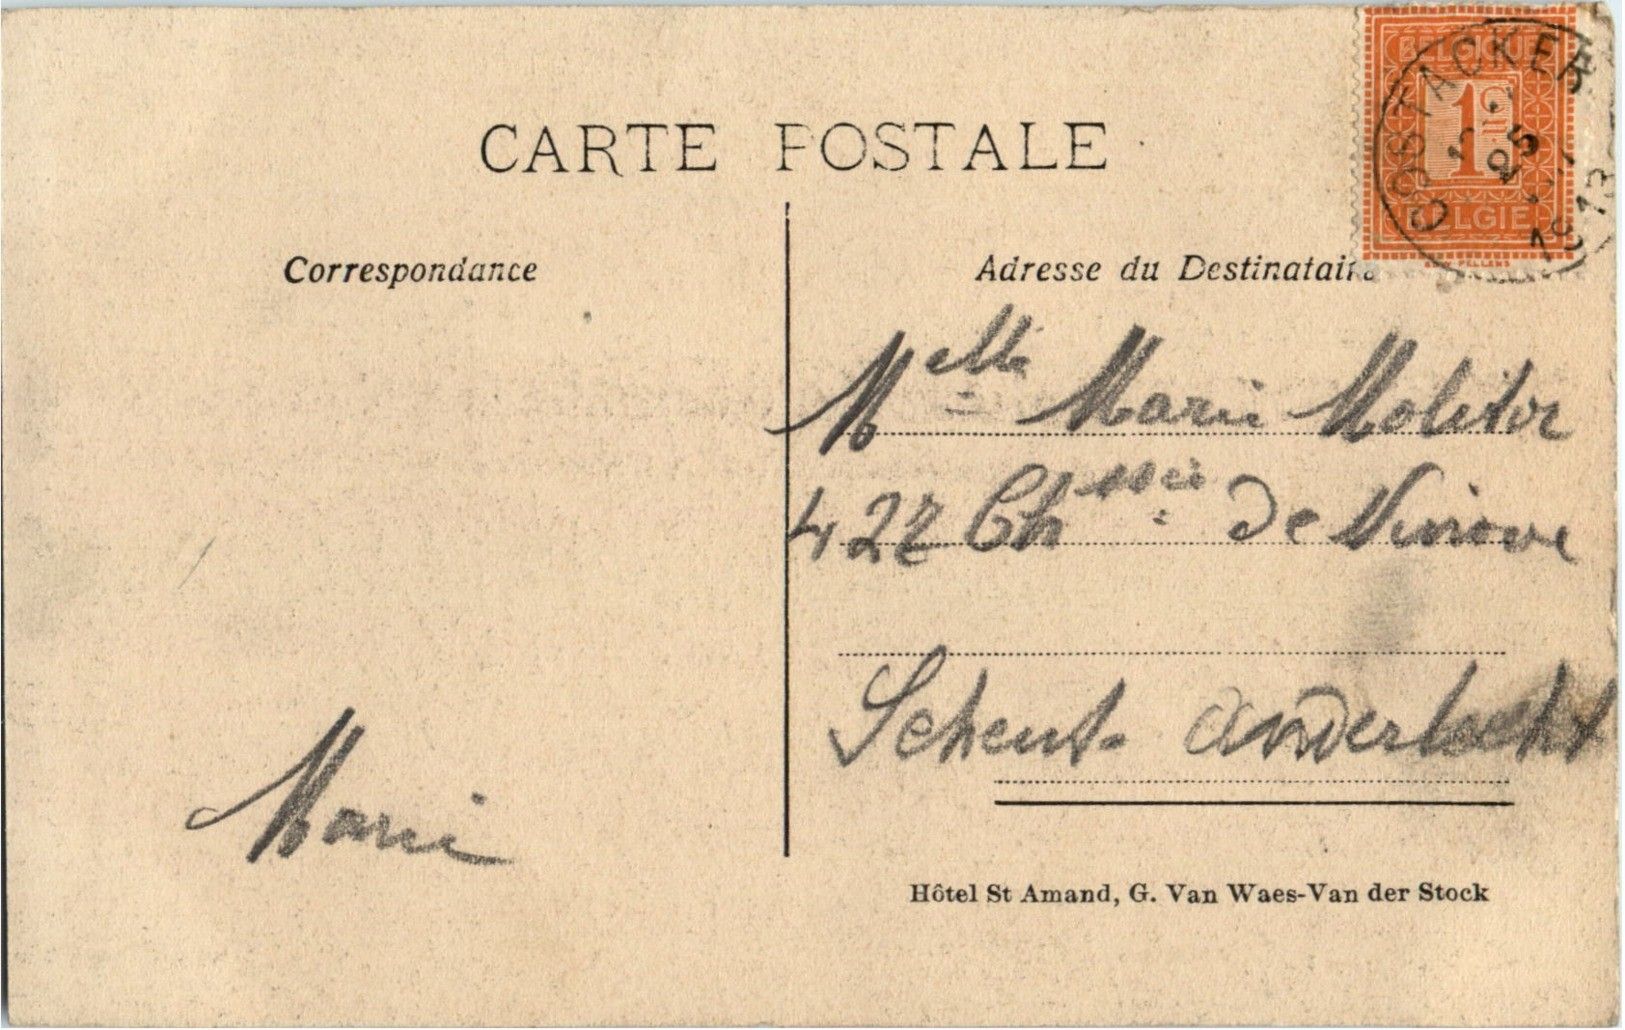 CARTE POSTALE
BELGIQUE
1c
BELGIE
OOSTACKER
25
1913
Correspondance
Adresse du Destinataire
Melle Marie Molitor
427 Chssée de Ninove
Scheut. Anderlecht
Marie
Hôtel St Amand, G. Van Waes-Van der Stock